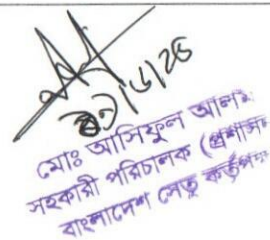 মোঃ আসিফুল আলম
সহকারী পরিচালক (প্রশাসন
বাংলাদেশ সেতু কর্তৃপক্ষ